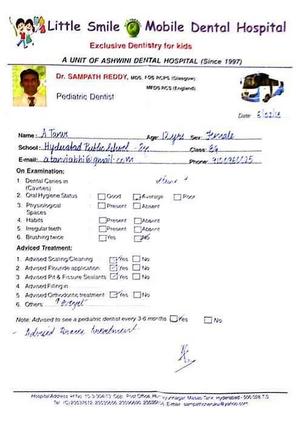 Little Smile Mobile Dental Hospital
Exclusive Dentistry for kids
A UNIT OF ASHWINI DENTAL HOSPITAL (Since 1997)
Dr. SAMPATH REDDY, MDS, FDS RCPS (Glasgow)
MFDS RCS (England)
Pediatric Dentist
Date:
Name: A Tanvi Age: 12 yrs Sex: Female
School: Hyderabad Public School Class:
E-mail: Phone:
On Examination:
1. Dental Caries in (Cavities)
2. Oral Hygiene Status Good Average Poor
3. Physiological Spaces Present Absent
4. Habits Present Absent
5. Irregular teeth Present Absent
6. Brushing twice Yes No
Adviced Treatment:
1. Advised Scaling/Cleaning Yes
2. Advised Flouride application Yes
3. Advised Pit & Fissure Sealants Yes
4. Advised Filling in
5. Advised Orthodontic treatment Yes
6. Others
Note: Advised to see a pediatric dentist every 3-6 months Yes No
Advised Braces treatment
Hospital Address